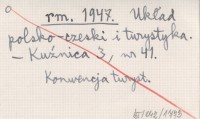 rm. 1947. Układ
polsko-czeski i turystyka.
– Kuźnica 3, nr 41.
Konwencja turyst.